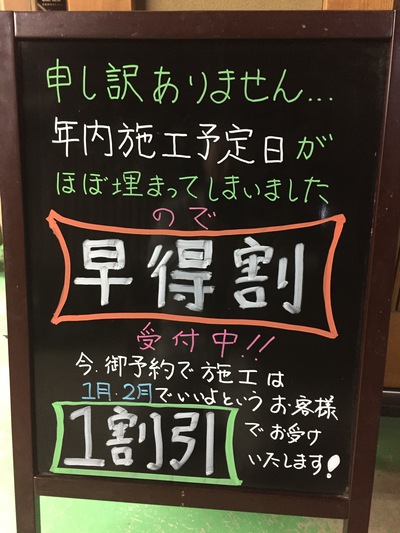 申し訳ありません...
年内施工予定日が
ほぼ埋まってしまいました
ので
早得割
受付中!!
今.御予約で施工は
1月.2月でいいよというお客様
1割引
でお受け
いたします!